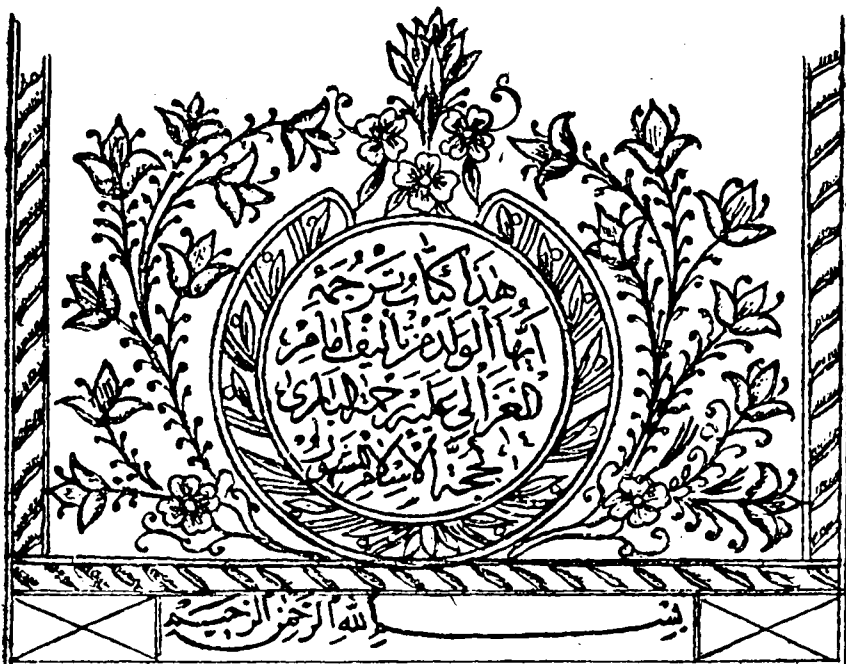 هذا كتاب ترجمهٔ
ايها الولد من تأليف امام
الغزالى عليه رحمة البارى
حجة الاسلام
بسم الله الرحمن الرحيم